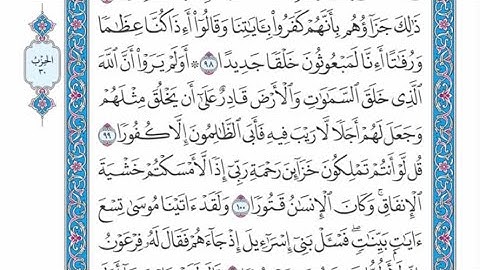 ذَٰلِكَ جَزَآؤُهُم بِأَنَّهُمْ كَفَرُوا۟ بِـَٔايَـٰتِنَا وَقَالُوٓا۟ أَءِذَا كُنَّا عِظَـٰمًا
الحِزْب ٣٠
وَرُفَـٰتًا أَءِنَّا لَمَبْعُوثُونَ خَلْقًا جَدِيدًا ٩٨ ۞ أَوَلَمْ يَرَوْا۟ أَنَّ ٱللَّهَ
ٱلَّذِى خَلَقَ ٱلسَّمَـٰوَٰتِ وَٱلْأَرْضَ قَادِرٌ عَلَىٰٓ أَن يَخْلُقَ مِثْلَهُمْ
وَجَعَلَ لَهُمْ أَجَلًا لَّا رَيْبَ فِيهِ فَأَبَى ٱلظَّـٰلِمُونَ إِلَّا كُفُورًا ٩٩
قُل لَّوْ أَنتُمْ تَمْلِكُونَ خَزَآئِنَ رَحْمَةِ رَبِّىٓ إِذًا لَّأَمْسَكْتُمْ خَشْيَةَ
ٱلْإِنفَاقِ ۚ وَكَانَ ٱلْإِنسَـٰنُ قَتُورًا ١٠٠ وَلَقَدْ ءَاتَيْنَا مُوسَىٰ تِسْعَ
ءَايَـٰتٍۭ بَيِّنَـٰتٍ ۖ فَسْـَٔلْ بَنِىٓ إِسْرَٰٓءِيلَ إِذْ جَآءَهُمْ فَقَالَ لَهُۥ فِرْعَوْنُ